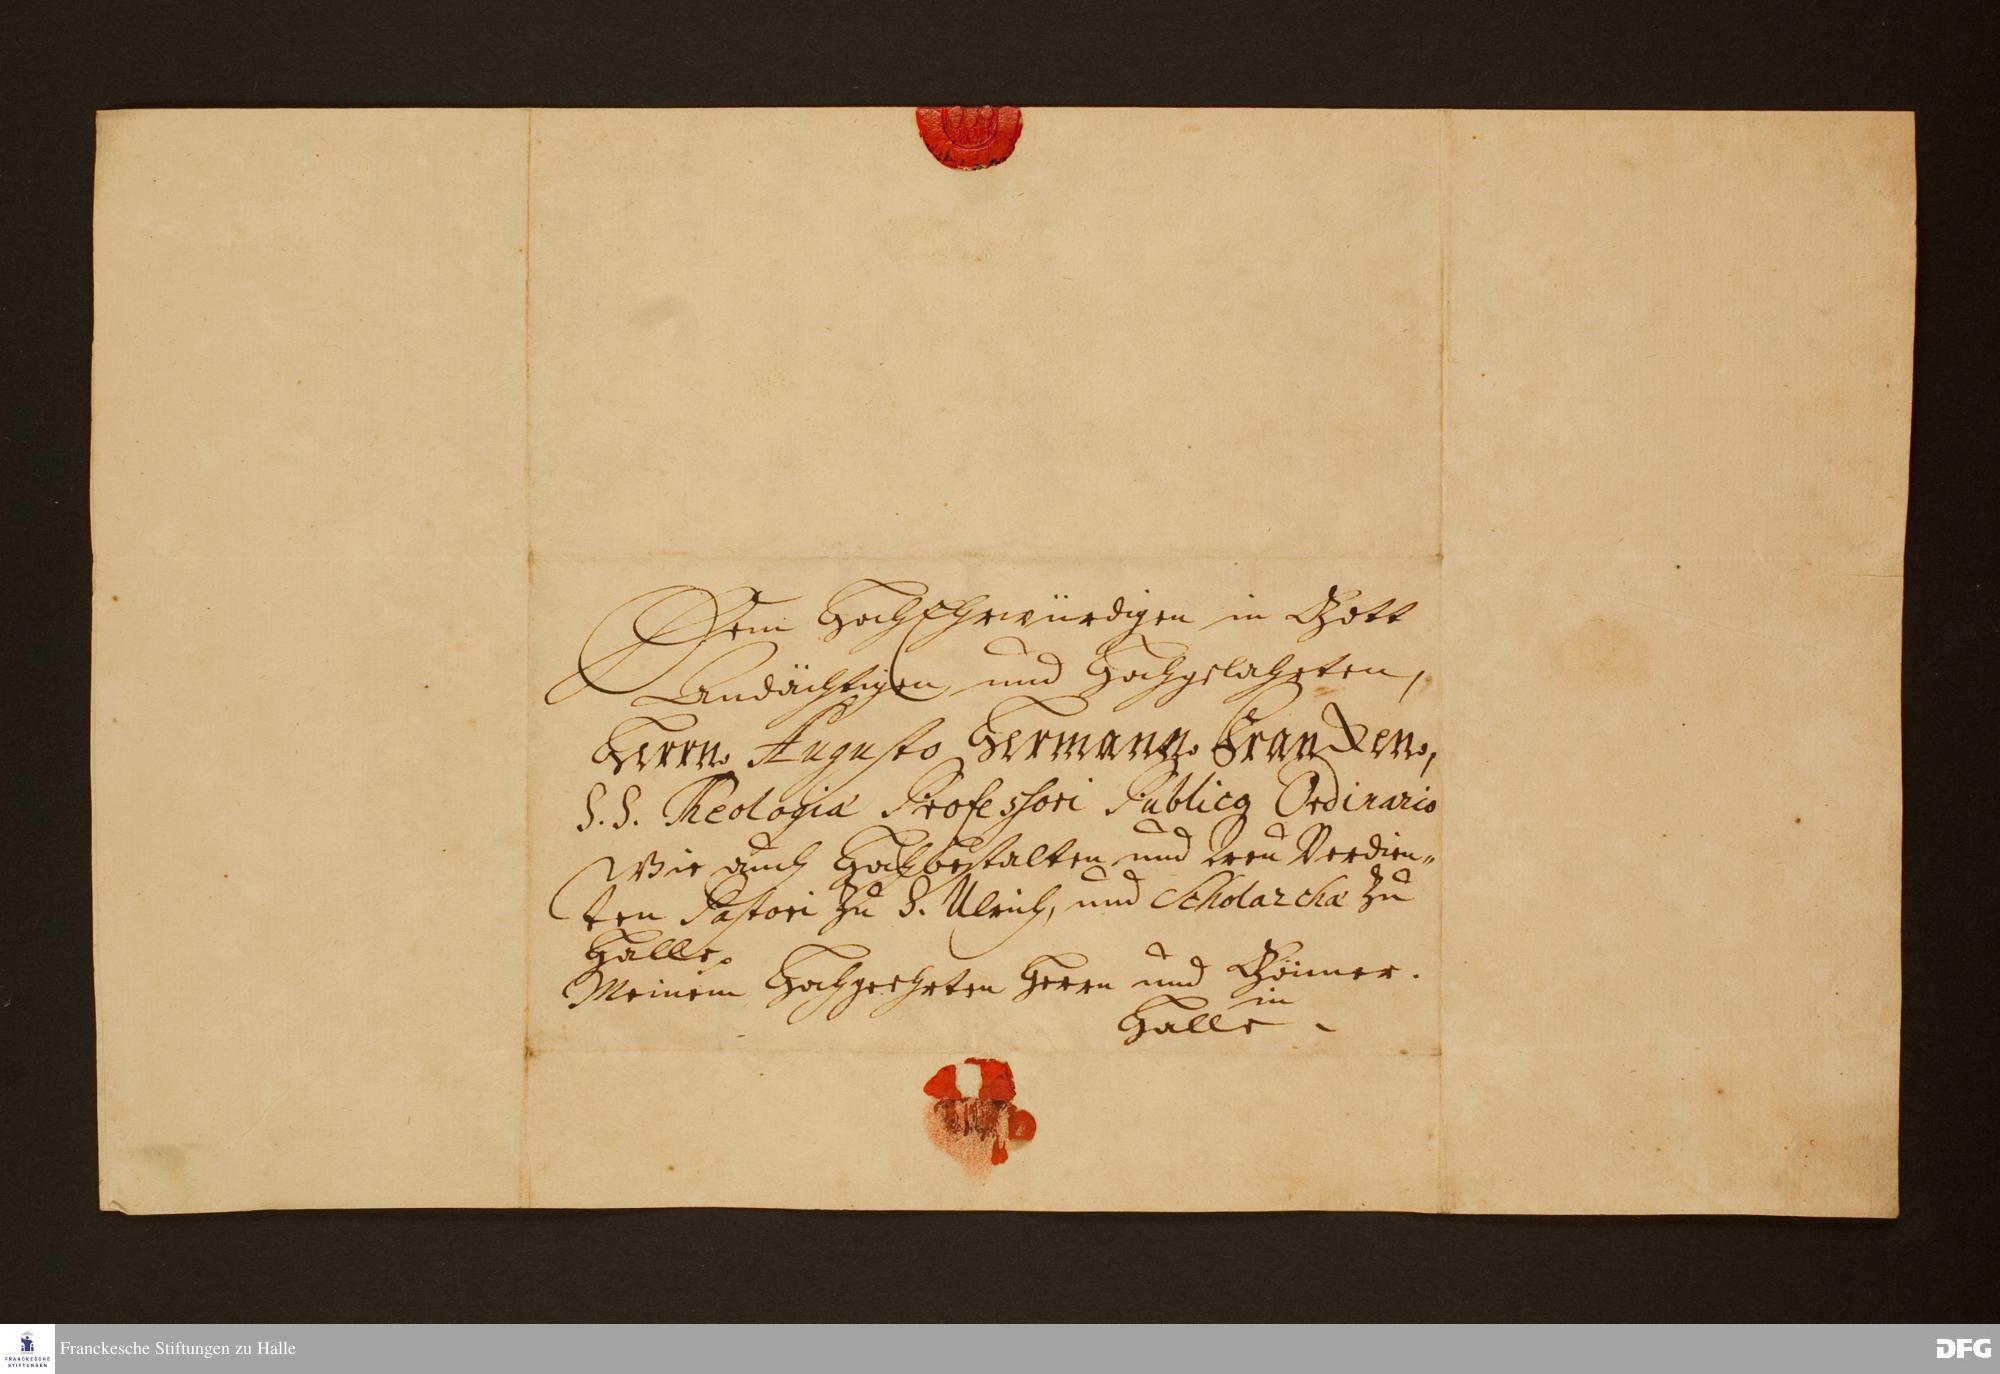 Dem HochEhrwürdigen in Gott
Andächtigen, und Hochgelahrten,
Herrn. Augusto Hermann. Francken.,
S. S. Theologiæ Professori Publico Ordinario
Wie auch Hochbestalten und treu Verdien„
ten Pastori zu S. Ulrich, und Scholarchæ zu
Halle.
Meinem Hochgeehrten Herrn und Gönner.
in
Halle
FRANCKESCHE
STIFTUNGEN
Franckesche Stiftungen zu Halle
DFG